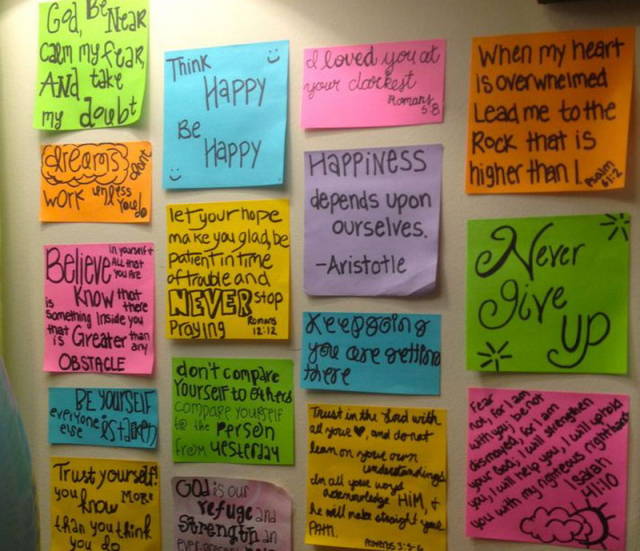 God, Be Near
calm my fear,
And take
my doubt
dreams don't
work unless
you do
Believe in yourself &
all that
you are
know that
there
is
something inside you
that
is Greater than
any
OBSTACLE
BE YOURSELF
everyone
else is taken
Trust yourself!
you MORE
know
than you think
you do
Think
Happy
Be
Happy
let your hope
make you glad, be
patient in time
of trouble and
NEVER stop
Praying Romans
12:12
don't compare
Yourself to others
compare yourself
to the person
from yesterday
God is our
refuge and
Strength an
I loved you at
your darkest
Romans
5:8
HAPPINESS
depends upon
ourselves.
-Aristotle
Keep going
you are getting
there
Trust in the Lord with
all your ♥, and do not
lean on your own
understanding.
In all your ways
acknowledge HIM, &
he will make straight your
PATH.
Proverbs 3:5-6
When my heart
is overwhelmed
Lead me to the
Rock that is
higher than I. Psalm
61:2
Never
give
up
Fear
not, for I am
with you; be not
dismayed, for I am
your God; I will strengthen
you, I will help you, I will uphold
you with my righteous right hand
Isaiah
41:10